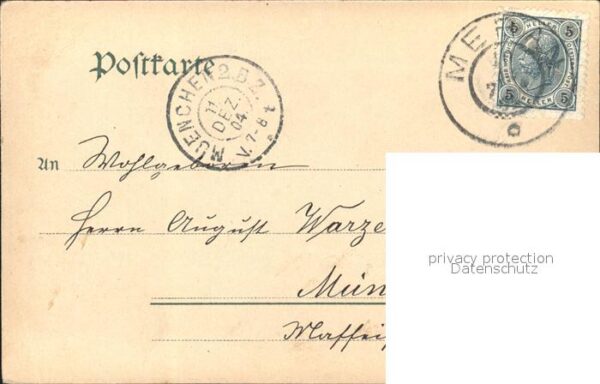 Postkarte
MUENCHEN 2.B.Z.
11
DEZ.
04.
V. 7-8
5 HELLER 5
5 HELLER 5
An Wohlgeboren
Herrn August Warze
Mün
Maffei
privacy protection
Datenschutz